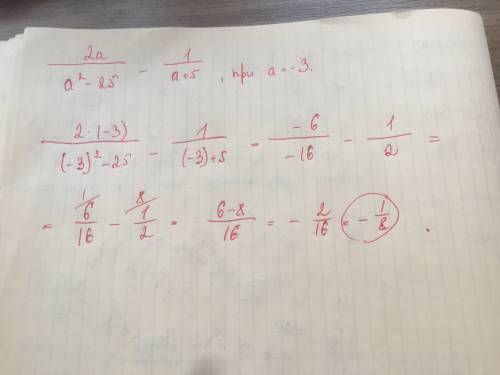 2a/(a² - 25) - 1/(a+5) , при a = -3.
2·(-3)/((-3)² - 25) - 1/((-3)+5) = -6/-16 - 1/2 =
= 6/16 (1) - 1/2 (8) = (6-8)/16 = - 2/16 = - 1/8 .